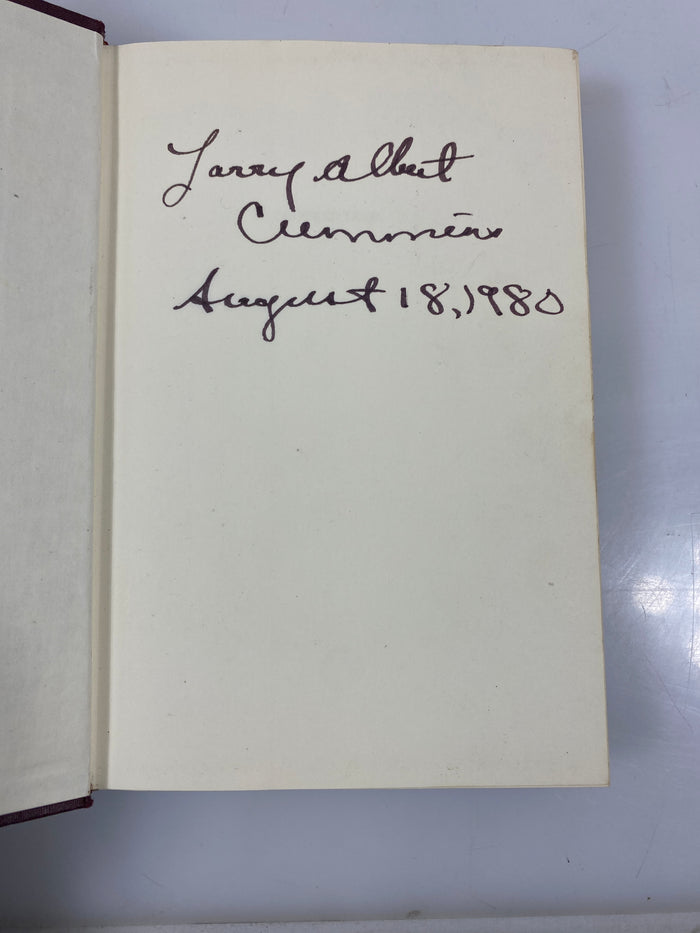 Larry Albert
Cummins
August 18, 1980